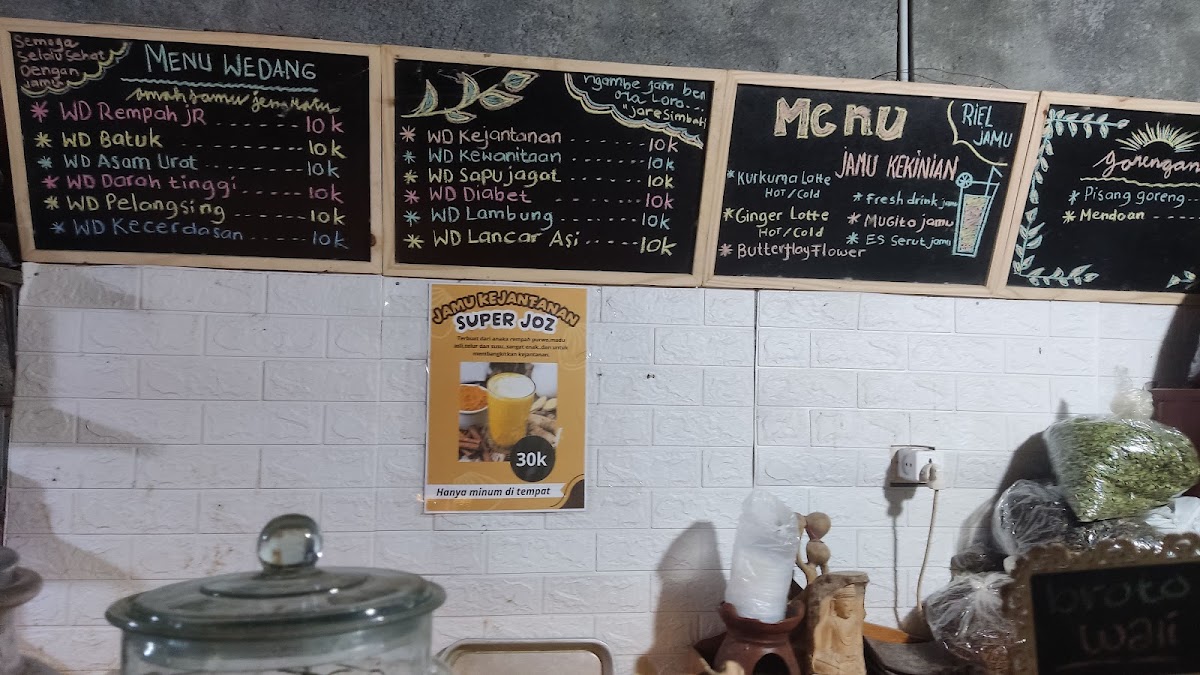 Semoga
selalu sehat
Dengan
Jamu
MENU WEDANG
WD Rempah JR ...... 10k
WD Batuk ...... 10k
WD Asam Urat ...... 10k
WD Darah tinggi ...... 10k
WD Pelangsing ...... 10k
WD Kecerdasan ...... 10k
ngambe jam ben
ora Loro...
"jare Simbah
WD Kejantanan ...... 10k
WD Kewanitaan ...... 10k
WD Sapu jagat ...... 10k
WD Diabet ...... 10k
WD Lambung ...... 10k
WD Lancar Asi ...... 10k
Menu
RiEL
JAMU
JAMU KEKINIAN
Kurkuma Latte
HOT/Cold
Ginger Lotte
HOT/Cold
Butterflay Flower
Fresh drink jamu
MUGito jamu
ES Serut jamu
gorengan
Pisang goreng...
Mendoan
JAMU KEJANTANAN
SUPER JOZ
Terbuat dari aneka rempah
asli,telur dan susu, sangat enak, dan untuk
membangkitkan kejantanan.
30k
Hanya minum di tempat
broto
wali